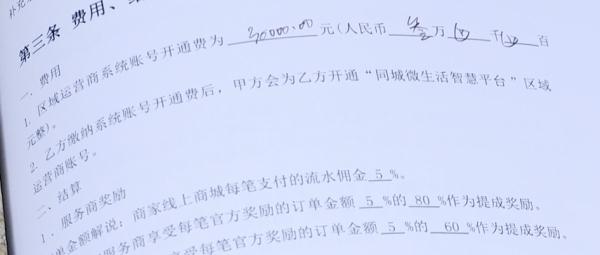 补充
第三条 费用、
一、费用
1. 区域运营商系统账号开通费为 30000.00 元(人民币 叁万 仟 百
元整)。
2. 乙方缴纳系统账号开通费后，甲方会为乙方开通“同城微生活智慧平台”区域
运营商账号。
二、结算
1. 服务商奖励
单金额解说：商家线上商城每笔支付的流水佣金 5 %。
服务商享受每笔官方奖励的订单金额 5 %的 80 %作为提成奖励。
享受每笔官方奖励的订单金额 5 %的 60 %作为提成奖励。